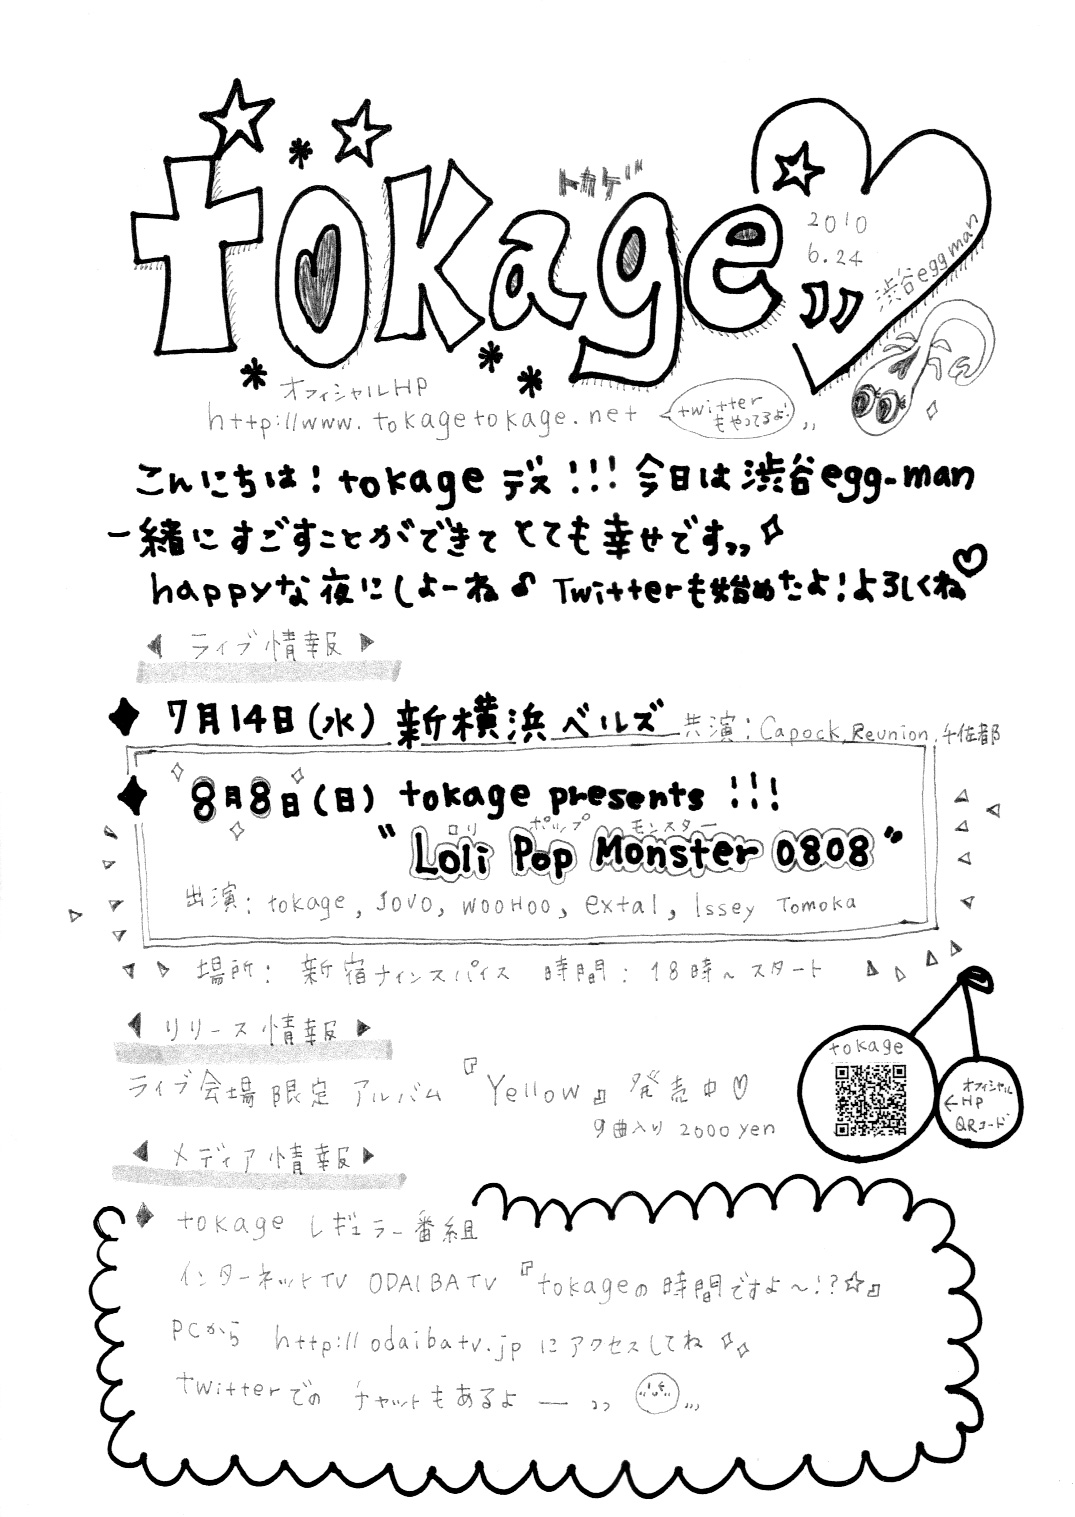 tokage
トカゲ
2010
6.24
渋谷eggman
オフィシャルHP
http://www.tokagetokage.net
twitter
もやってるよ!
こんにちは!tokage デス!!!今日は渋谷egg-man
一緒にすごすことができてとても幸せです
happyな夜にしよーね♪ Twitterも始めたよ!よろしくね♡
ライブ情報
7月14日(水) 新横浜ベルズ 共演:Capock, Reunion, 千佐都
8月8日(日) tokage presents !!!
ロリ ポップ モンスター
"Loli Pop Monster 0808"
出演:tokage, JOVO, WOOHOO, extal, Issey Tomoka
場所:新宿ナインスパイス 時間:18時〜スタート
リリース情報
ライブ会場限定 アルバム 『Yellow』発売中♡
9曲入り 2000yen
tokage
オフィシャル
←HP
QRコード
メディア情報
tokage レギュラー番組
インターネットTV ODAIBATV 『tokageの時間ですよ〜!?☆』
PCから http://odaibatv.jp にアクセスしてね
twitterでの チャットもあるよー